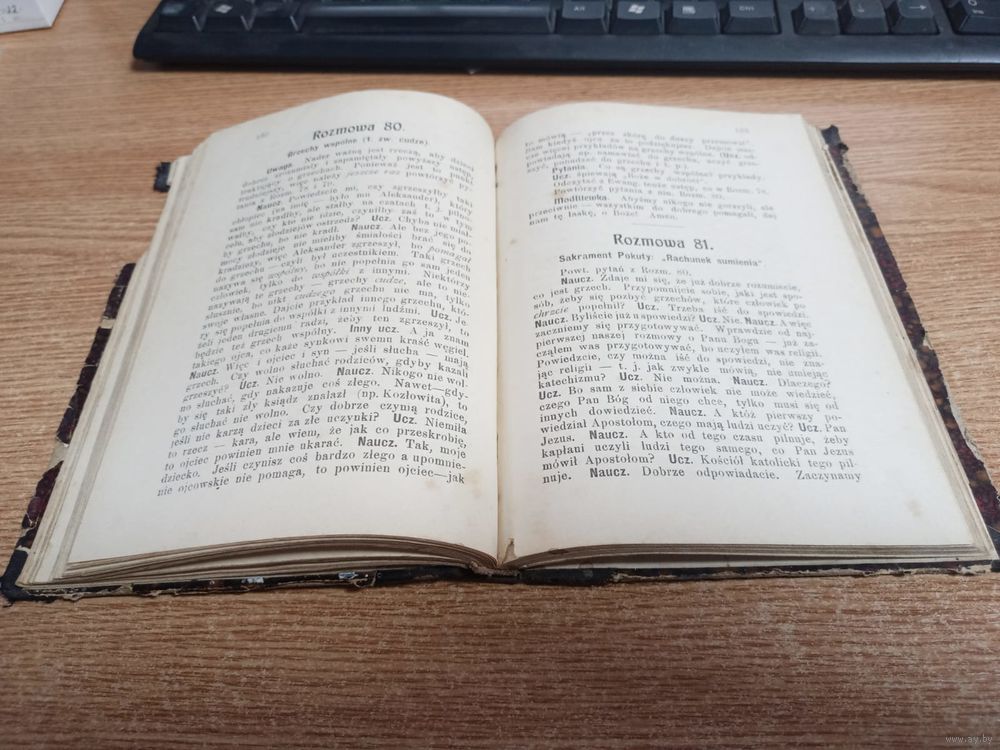 Rozmowa 80.
Grzechy wspólne (t. zw. cudze).
Uwaga. Nader ważną jest rzeczą, aby dzieci
dobrze zrozumiały i zapamiętały powyższy ustęp,
traktujący o grzechach. Ponieważ jest to
więc należy jeszcze raz powtórzyć py-
tania z Rozm.
Naucz. Powiedzcie mi, czy zgrzeszyłby
chłopiec (na imię było mu Aleksander), który
sam nie kradłby, ale stałby na czatach t. j. pilno-
wałby, czy kto nie idzie, czyniłby zaś to w tym
celu, aby złodziejów ostrzedz? Ucz. Chyba nie miał-
by grzechu, bo nie kradł. Naucz. Ale bez jego po-
mocy złodzieje nie mieliby śmiałości brać się do
kradzieży, więc Aleksander zgrzeszył, bo pomagał
do grzechu — czyli był uczestnikiem. Taki grzech
nazywa się wspólny, bo nie popełnia go sam jeden
człowiek, tylko do współki z innymi. Niektórzy
nazywają te grzechy — grzechy cudze, ale to nie-
słusznie, bo nikt cudzego grzechu nie ma, tylko
swoje własne. Dajcie przykład innego grzechu, któ-
ry się popełnia do współki z innymi ludźmi. Ucz. Je-
żeli jeden drugiemu radzi, żeby ten zgrzeszył, to
będzie grzech wspólny. Inny ucz. A ja znam
takiego ojca, co każe synkowi swemu kraść węgiel.
Naucz. Więc i ojciec i syn — jeśli słucha — mają
grzech. Czy wolno słuchać rodziców, gdyby kazali
grzeszyć? Ucz. Nie wolno. Naucz. Nikogo nie wol-
no słuchać, gdy nakazuje coś złego. Nawet—gdy-
by się taki zły ksiądz znalazł (np. Kozłowita), to
go słuchać nie wolno. Czy dobrze czynią rodzice,
jeśli nie karzą dzieci za złe uczynki? Ucz. Niemiła
to rzecz — kara, ale wiem, że jak co przeskrobię,
to ojciec powinien mnie ukarać. Naucz. Tak, moje
dziecko. Jeśli czynisz coś bardzo złego a upomnie-
nie ojcowskie nie pomaga, to powinien ojciec—jak
to mówią — „przez skórę do duszy przemówić".
Dam kiedyś ojca za to podziękujesz. Dajcie wię-
cej przykładów na grzechy wspólne. (Ucz. od-
powiadają np. namawiać do grzechu, uczyć grze-
chu, pobudzać do grzechu i t. d.
Pytania. Co są grzechy wspólne? przykłady.
Ucz. śpiewają
Odczytać z Ewang. tenże ustęp, co w Rozm. 78.
Powtórzyć pytania z num. Rozm. 80.
Modlitewka. Abyśmy nikogo nie gorszyli, ale
przeciwnie — wszystkim do dobrego pomagali, daj
nam tę łaskę, o Boże! Amen.
Rozmowa 81.
Sakrament Pokuty: „Rachunek sumienia".
Powt. pytań z Rozm. 80.
Naucz. Zdaje mi się, że już dobrze rozumiecie,
co jest grzech. Przypomnijcie sobie, jaki jest spo-
sób, żeby się pozbyć grzechów, które człowiek po
chrzcie popełnił? Ucz. Trzeba iść do spowiedzi.
Naucz. Byliście już u spowiedzi? Ucz. Nie. Naucz. A więc
zaczniemy się przygotowywać. Wprawdzie od naj-
pierwszej naszej rozmowy o Panu Bogu — już za-
cząłem was przygotowywać, bo uczyłem was religii.
Powiedzcie, czy można iść do spowiedzi, nie zna-
jąc religii — t. j. jak zwykle mówią, nie umiejąc
katechizmu? Ucz. Nie można. Naucz. Dlaczego?
Ucz. Bo sam z siebie człowiek nie może wiedzieć,
czego Pan Bóg od niego chce, tylko musi się od
innych dowiedzieć. Naucz. A któż pierwszy po-
wiedział Apostołom, czego mają ludzi uczyć? Ucz. Pan
Jezus. Naucz. A kto od tego czasu pilnuje, żeby
kapłani uczyli ludzi tego samego, co Pan Jezus
mówił Apostołom? Ucz. Kościół katolicki tego pil-
nuje. Naucz. Dobrze odpowiadacie. Zaczynamy
www.ay.by